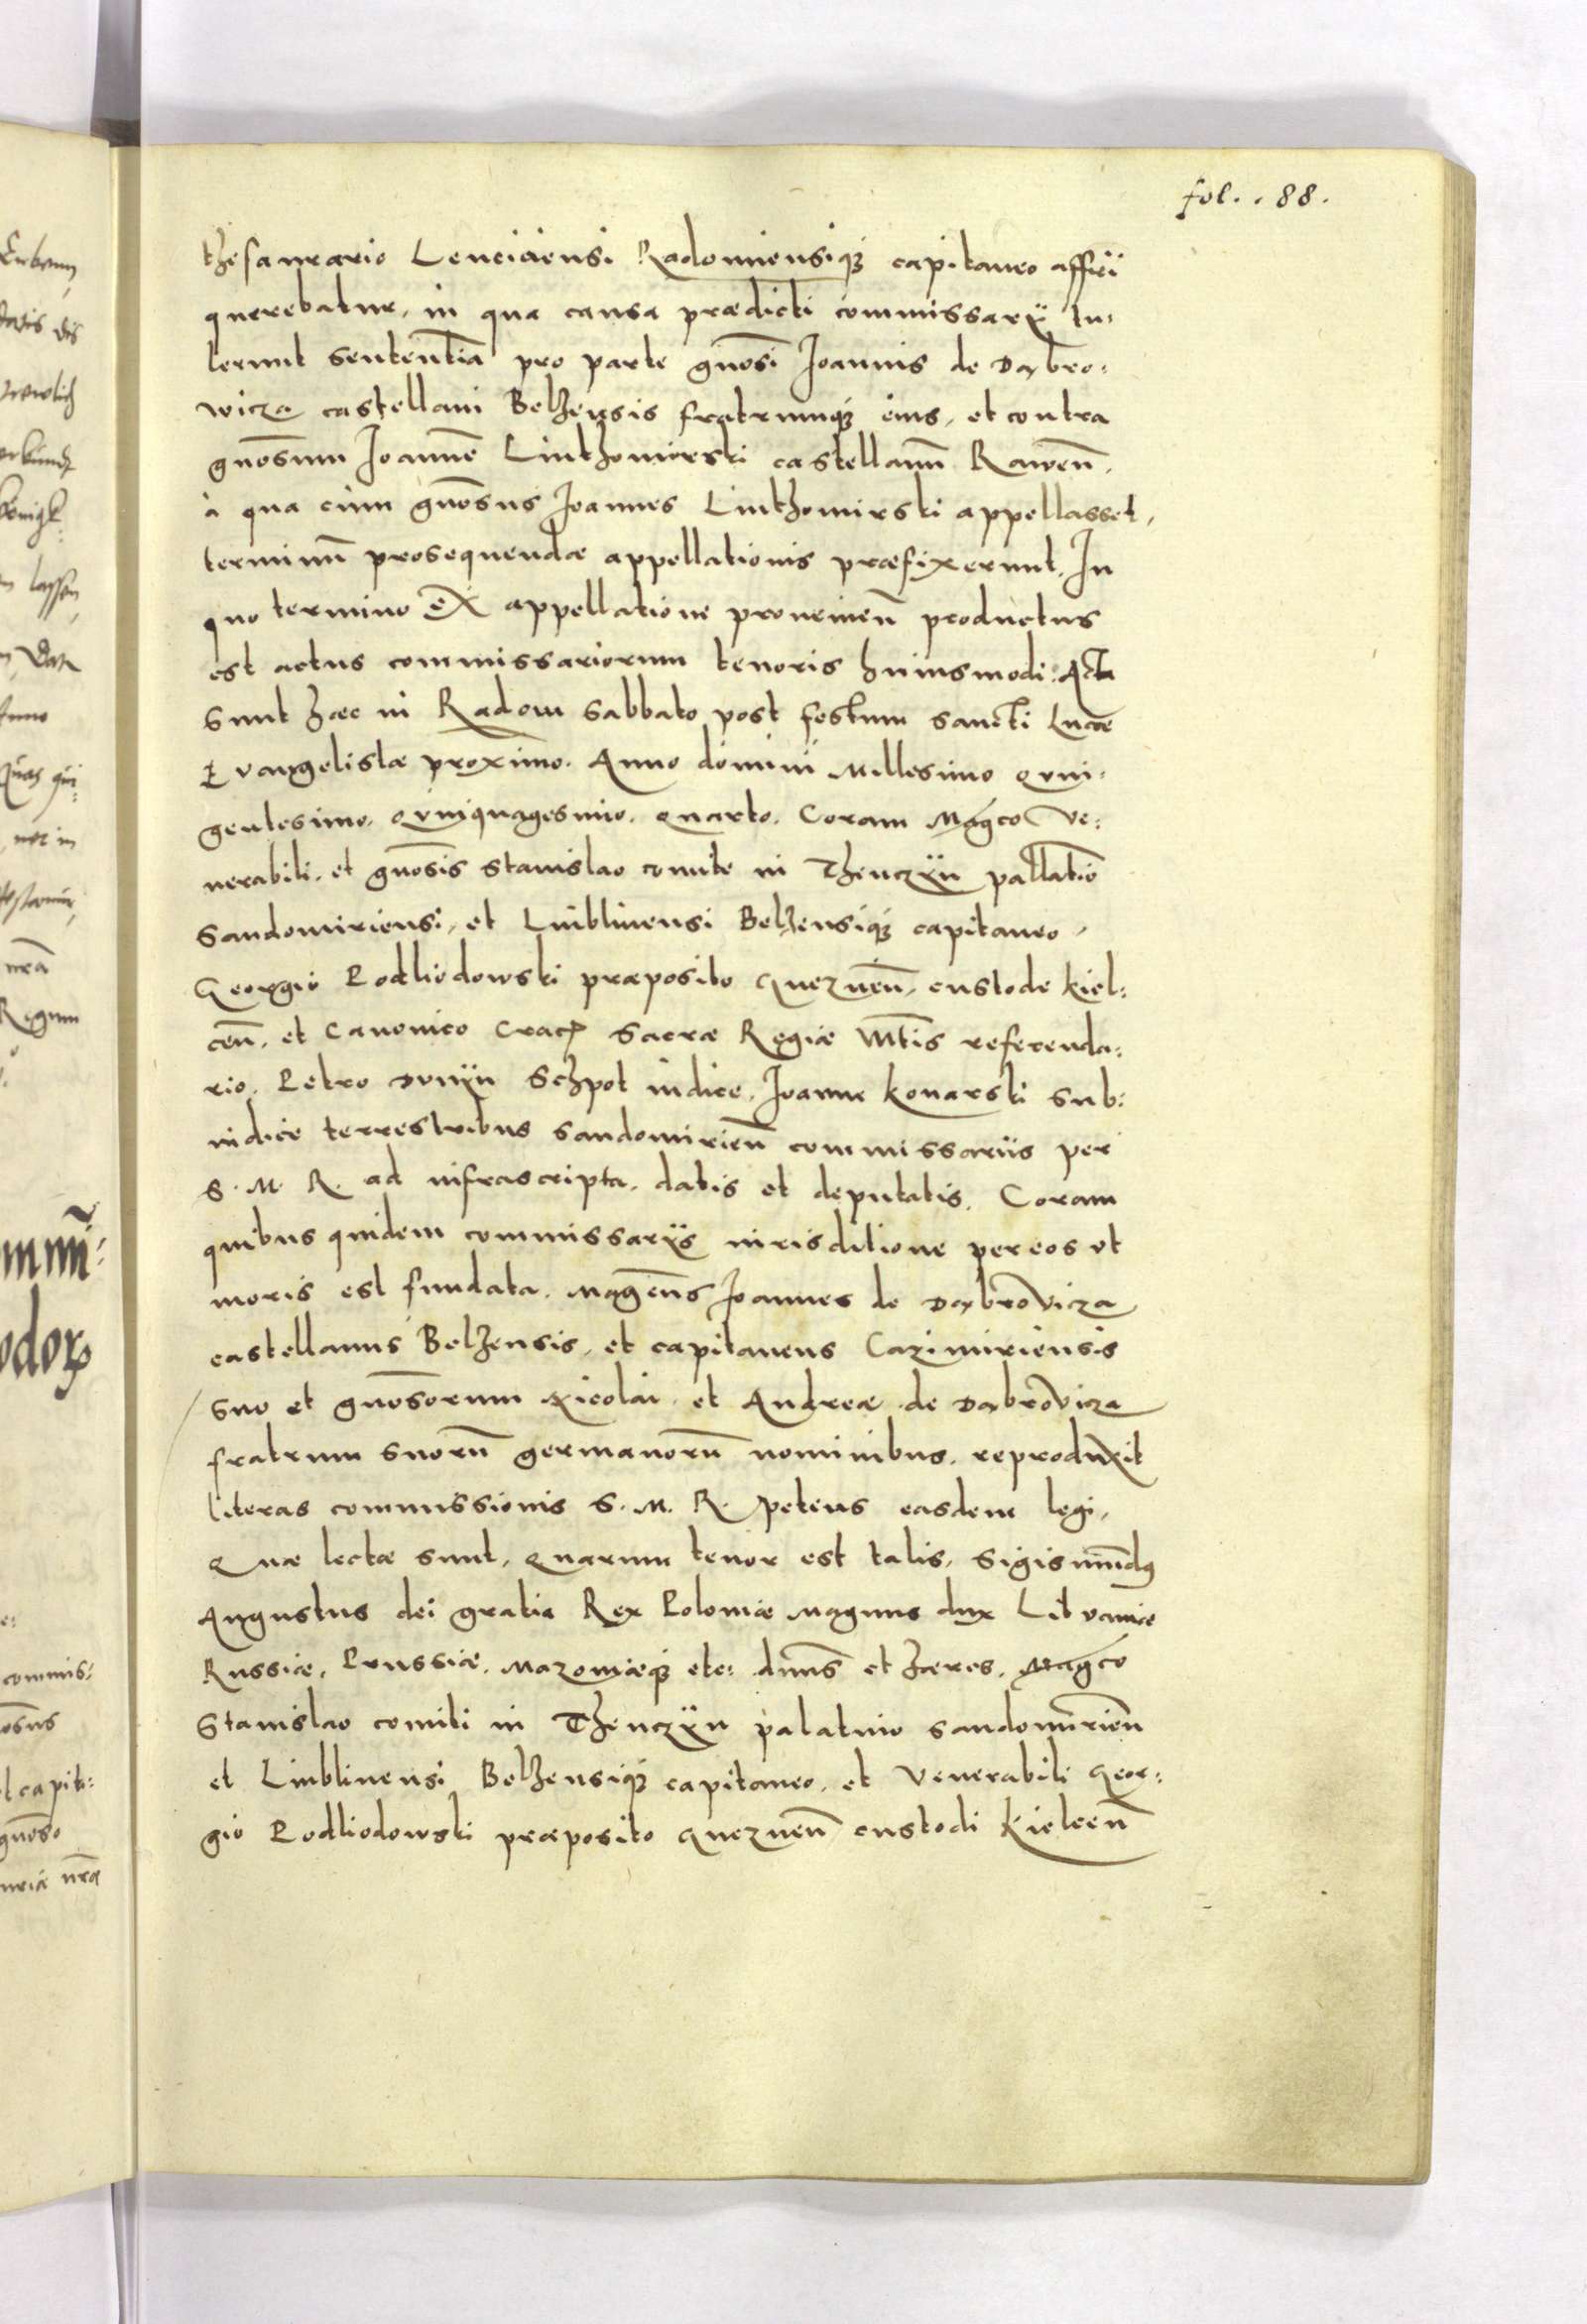 fol. . 88.
thesaurario Lenciciensi Radomiensiq3 capitaneo afferri
querebatur, in qua causa prædicti commissarÿ tu-
lerunt sententiã pro parte gnõsi Joannis de Dąbro-
wicza castellani Belzensis fratrumq3 eius, et contra
gnõsum Joannẽ Luthomirski castellanũ Rawen̄.
à qua cum gnõsus Joannes Luthomirski appellasset,
terminũ prosequendæ appellationis præfixerunt. In
quo termino ex appellatione proueniẽn productus
est actus commissariorum tenoris huiusmodi: Acta
sunt hæc in Radom sabbato post festum sancti Lucæ
Evangelistæ proximo. Anno domini Millesimo qvin-
gentesimo. qvinquagesimo. quarto. Coram Magco Ve-
nerabili, et gnõsis Stanislao comite in Thenczÿn pallatiõ
Sandomiriensi, et Lublinensi Belzensiq3 capitaneo,
Georgio Podliodowski præposito Gneznen̄, custode Kiel-
cen̄, et Canonico Crac. Sacræ Regiæ Mtis referenda-
rio. Petro Dvnÿn Schpot iudice, Joanne Konarski sub-
iudice terrestribus sandomirien̄ commissariis per
S. M. R. ad infrascripta, datis et deputatis. Coram
quibus quidem commissarÿs iurisditione per eos vt
moris est fundata. Magcus Joannes de DąbroVicza
castellanus Belzensis, et capitaneus Cazimiriensis
suo et gnõsorum Nicolai, et Andreæ de DąbroVicza
fratrum suorũ germanorũ nominibus, reproduxit
literas commissionis S. M. R. petens easdem legi,
Quæ lectæ sunt, quarum tenor est talis, Sigismũd9
Augustus dei gratia Rex Poloniæ Magnus dux Litvaniæ
Russiæ, Prussiæ, Mazouiæq3 etc: dnũs et hæres. Magco
Stanislao comiti in Thenczÿn palatino sandomirien̄
et Lublinensi Belzensiq3 capitaneo, et Venerabili Geor-
gio Podliodowski præposito Gneznen̄ custodi Kielcen̄